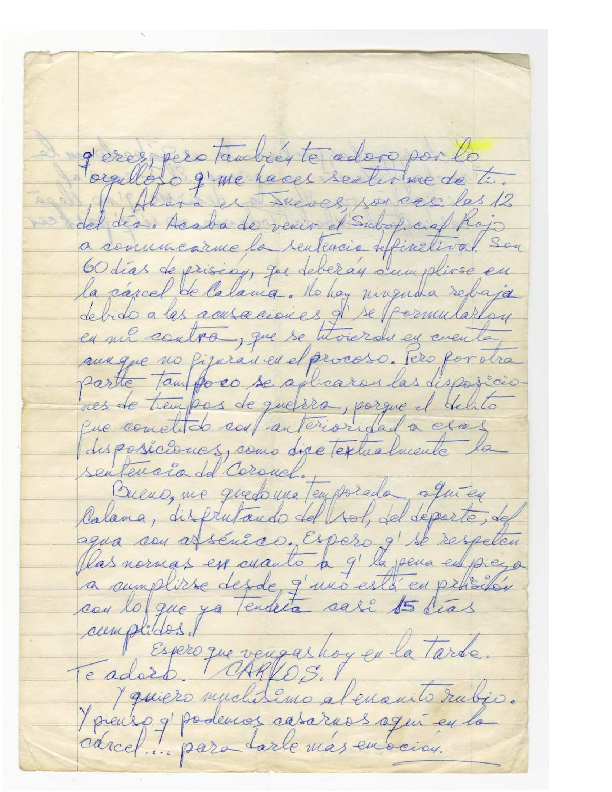 q' eres, pero también te adoro por lo
orgulloso q' me haces sentirme de ti.
Ahora es Jueves, son casi las 12
del día. Acaba de venir el Suboficial Rojo
a comunicarme la sentencia difinitiva. Son
60 días de prisión, que deberán cumplirse en
la cárcel de Calama. No hay ninguna rebaja
debido a las acusaciones q' se formularon
en mi contra, que se tuvieron en cuenta
aunque no figuran en el proceso. Pero por otra
parte tampoco se aplicaron las disposicio-
nes de tiempos de guerra, porque el delito
fue cometido con anterioridad a esas
disposiciones, como dice textualmente la
sentencia del Coronel.
Bueno, me queda una temporada, aquí en
Calama, disfrutando del sol, del deporte, del
agua con arsénico. Espero q' se respeten
las normas en cuanto a q' la pena empieza
a cumplirse desde q' uno está en prisión
con lo que ya tendría casi 15 días
cumplidos.
Espero que vengas hoy en la tarde.
Te adoro. CARLOS.
Y quiero muchísimo al enanito rubio.
Y pienso q' podemos casarnos aquí en la
cárcel.... para darle más emoción.